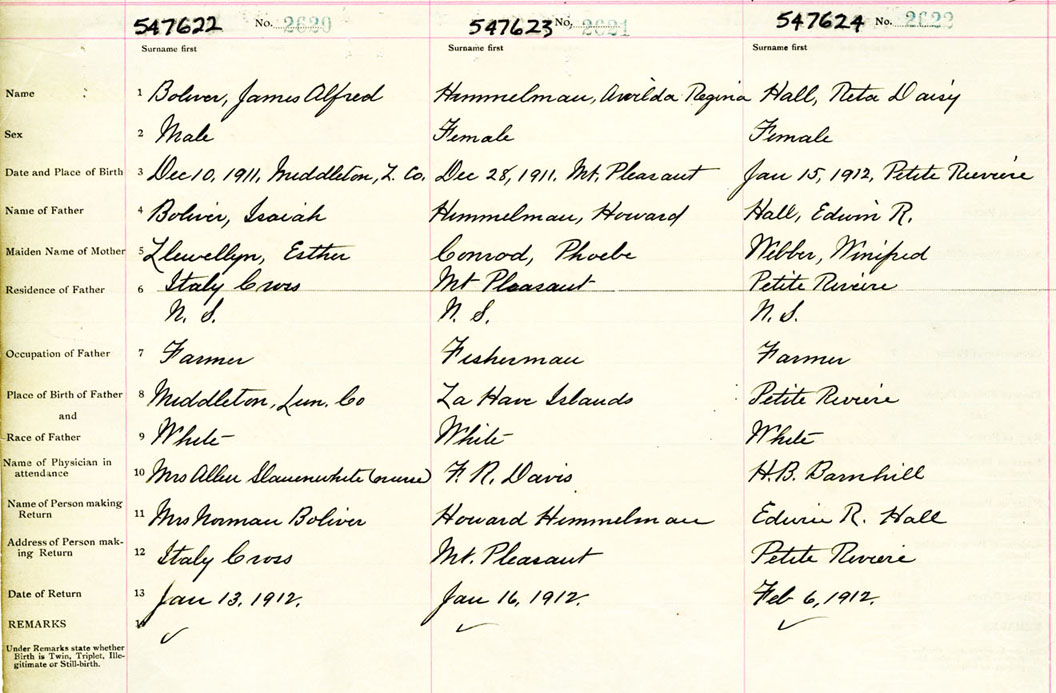 547622 No. 2620 547623 No. 2621 547624 No. 2622
Surname first Surname first Surname first
Name 1 Boliver, James Alfred Himmelman, Awilda Regina Hall, Reta Daisy
Sex 2 Male Female Female
Date and Place of Birth 3 Dec 10, 1911, Middleton, L. Co. Dec 28, 1911. Mt. Pleasant Jan 15, 1912, Petite Riviere
Name of Father 4 Boliver, Isaiah Himmelman, Howard Hall, Edwin R.
Maiden Name of Mother 5 Llewellyn, Esther Conrod, Phoebe Webber, Winifred
Residence of Father 6 Italy Cross Mt Pleasant Petite Riviere
N. S. N. S. N. S.
Occupation of Father 7 Farmer Fisherman Farmer
Place of Birth of Father 8 Middleton, Lun. Co La Have Islands Petite Riviere
and
Race of Father 9 White White White
Name of Physician in
attendance 10 Mrs Allen Slauenwhite (nurse) F. R. Davis H. B. Barnhill
Name of Person making
Return 11 Mrs Norman Boliver Howard Himmelman Edwin R. Hall
Address of Person mak-
ing Return 12 Italy Cross Mt. Pleasant Petite Riviere
Date of Return 13 Jan 13, 1912. Jan 16, 1912. Feb 6, 1912.
REMARKS 14
Under Remarks state whether
Birth is Twin, Triplet, Ille-
gitimate or Still-birth.